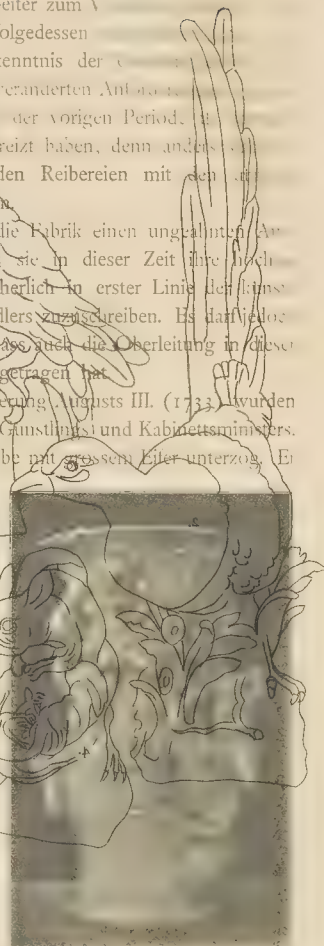 beiter zum
folgedessen
kenntnis der
veränderten
der vorigen Period.
reizt haben, denn anders
den Reibereien mit den
n.
die Fabrik einen
sie in dieser Zeit ihre hoch
herlich in erster Linie der küns
dlers zuzuschreiben. Es darf jedoc
ass auch die Oberleitung in dieser
getragen hat.
erung Augusts III. (1733) wurden
Günstlings und Kabinettsministers.
be mit grossem Eifer unterzog. Er